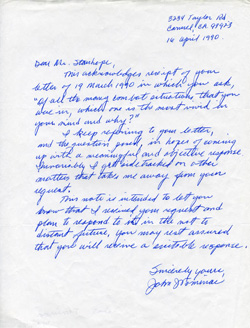 3234 Taylor Rd
Carmel, CA 93923
16 April 1990.
Dear Mr. Stanhope,
This acknowledges receipt of your
letter of 19 March 1990 in which you ask,
"Of all the many combat situations that you
were in, which one is the most vivid in
your mind and why?"
I keep referring to your letter,
and the question posed, in hopes of coming
up with a meaningful and objective response.
Invariably I get side tracked on other
matters that takes me away from your
request.
This note is intended to let you
know that I received your request and
plan to respond to it in the not to
distant future, you may rest assured
that you will receive a suitable response.
Sincerely yours,
John